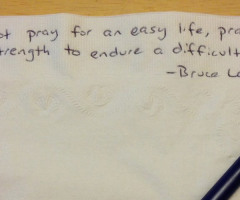 ot pray for an easy life, pra
trength to endure a difficult
-Bruce Le